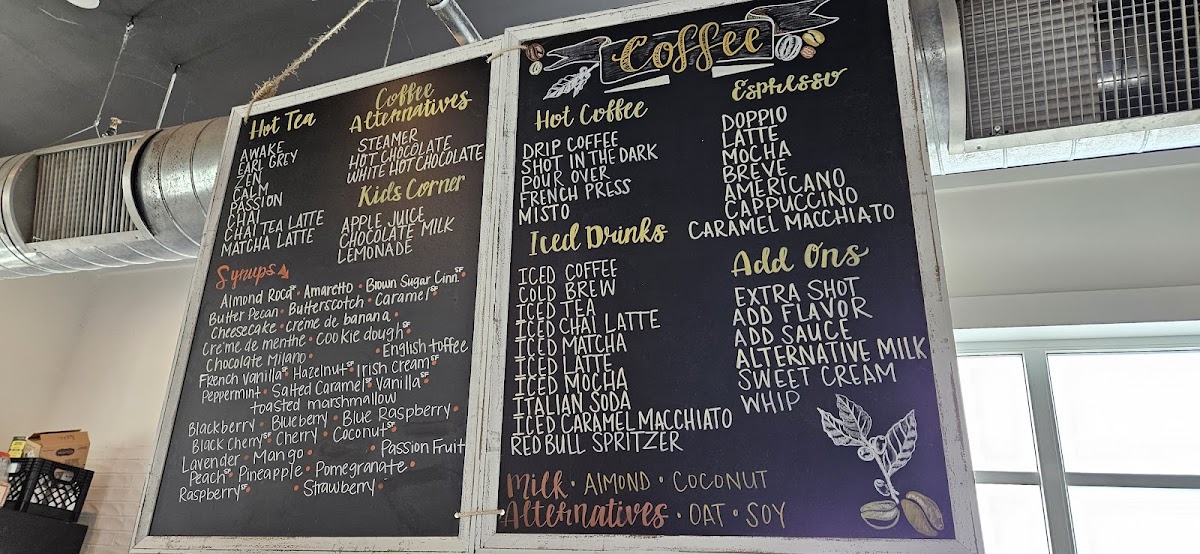 Hot Tea
AWAKE
EARL GREY
ZEN
CALM
PASSION
CHAI
CHAI TEA LATTE
MATCHA LATTE
Coffee
Alternatives
STEAMER
HOT CHOCOLATE
WHITE HOT CHOCOLATE
Kids Corner
APPLE JUICE
CHOCOLATE MILK
LEMONADE
Syrups
Almond Roca SF • Amaretto • Brown Sugar Cinn. SF •
Butter Pecan • Butterscotch • Caramel SF •
Cheesecake • crème de banana •
crème de menthe • cookie dough SF •
Chocolate Milano • • English toffee
French Vanilla SF • Hazelnut SF • Irish Cream SF •
Peppermint • Salted Caramel SF • Vanilla SF •
toasted marshmallow
Blackberry • Blueberry • Blue Raspberry •
Black Cherry SF • Cherry • Coconut SF •
Lavender • Mango • • Passion Fruit
Peach SF • Pineapple • Pomegranate •
Raspberry SF • • Strawberry •
Coffee
Hot Coffee
DRIP COFFEE
SHOT IN THE DARK
POUR OVER
FRENCH PRESS
MISTO
Iced Drinks
ICED COFFEE
COLD BREW
ICED TEA
ICED CHAI LATTE
ICED MATCHA
ICED LATTE
ICED MOCHA
ITALIAN SODA
ICED CARAMEL MACCHIATO
RED BULL SPRITZER
Espresso
DOPPIO
LATTE
MOCHA
BREVE
AMERICANO
CAPPUCCINO
CARAMEL MACCHIATO
Add Ons
EXTRA SHOT
ADD FLAVOR
ADD SAUCE
ALTERNATIVE MILK
SWEET CREAM
WHIP
Milk • ALMOND • COCONUT
Alternatives • OAT • SOY